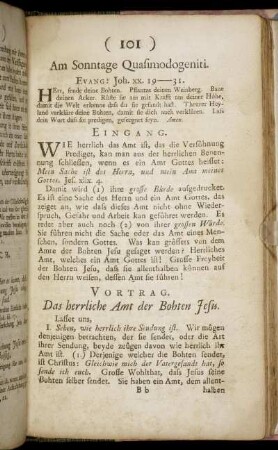 ( 101 )
Am Sonntage Quasimodogeniti.
EVANG: Joh. XX. 19—31.
HErr, sende deine Bohten. Pflantze deinen Weinberg. Baue
deinen Acker. Rüste sie aus mit Kraft aus deiner Höhe,
damit die Welt erkenne daß du sie gesandt hast. Theurer Hey-
land verkläre deine Bohten, damit sie dich auch verklären. Laß
dein Wort daß sie predigen, gesegnet seyn. Amen.
EINGANG.
WIE herrlich das Amt ist, das die Versöhnung
Prediget, kan man aus der herrlichen Benen-
nung schliessen, wenn es ein Amt Gottes heisset:
Mein Sache ist des Herrn, und mein Amt meines
Gottes. Jes. xlix. 4.
Damit wird (1) ihre grosse Bürde ausgedrucket.
Es ist eine Sache des Herrn und ein Amt Gottes, das
zeiget an, wie daß dieses Amt nicht ohne Wieder-
spruch, Gefahr und Arbeit kan geführet werden. Es
redet aber auch noch (2) von ihrer grossen Würde.
Sie führen nicht die Sache oder das Amt eines Men-
schen, sondern Gottes. Was kan grössers von dem
Amte der Bohten Jesu gesaget werden? Herrliches
Amt, welches ein Amt Gottes ist! Grosse Freyheit
der Bohten Jesu, daß sie allenthalben können auf
den Herrn weisen, dessen Amt sie führen!
VORTRAG.
Das herrliche Amt der Bohten Jesu.
Lasset uns,
I. Sehen, wie herrlich ihre Sendung ist. Wir mögen
denjenigen betrachten, der sie sendet, oder die Art
ihrer Sendung, beyde zeugen davon wie herrlich ihr
Amt ist. (1.) Derjenige welcher die Bohten sendet,
ist Christus: Gleichwie mich der Vater gesandt hat, so
sende ich euch. Grosse Wohlthat, daß Jesus seine
Bohten selber sendet. Sie haben ein Amt, dem allent-
B b
halben